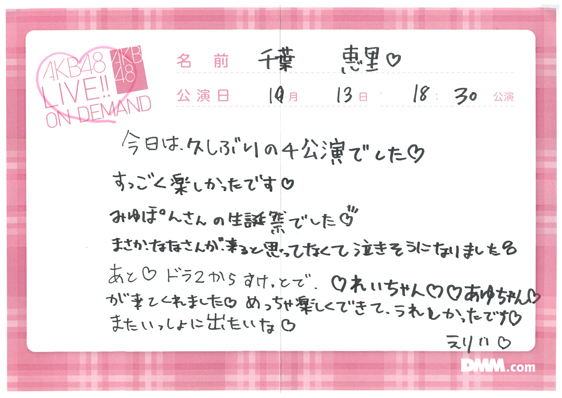 AKB48
LIVE!!
ON DEMAND
AKB
48
名前 千葉 恵里♡
公演日 10月 13日 18:30 公演
今日は、久しぶりの4公演でした♡
すっごく楽しかったです♡
みゆぽんさんの生誕祭でした
まさかななさんが来ると思ってなくて泣きそうになりました
あと♡ ドラ2からすけっとで、♡れいちゃん♡♡あゆちゃん♡
が来てくれました♡ めっちゃ楽しくできて、うれしかったです♡
またいっしょに出たいな♡
えりい♡
DMM.com